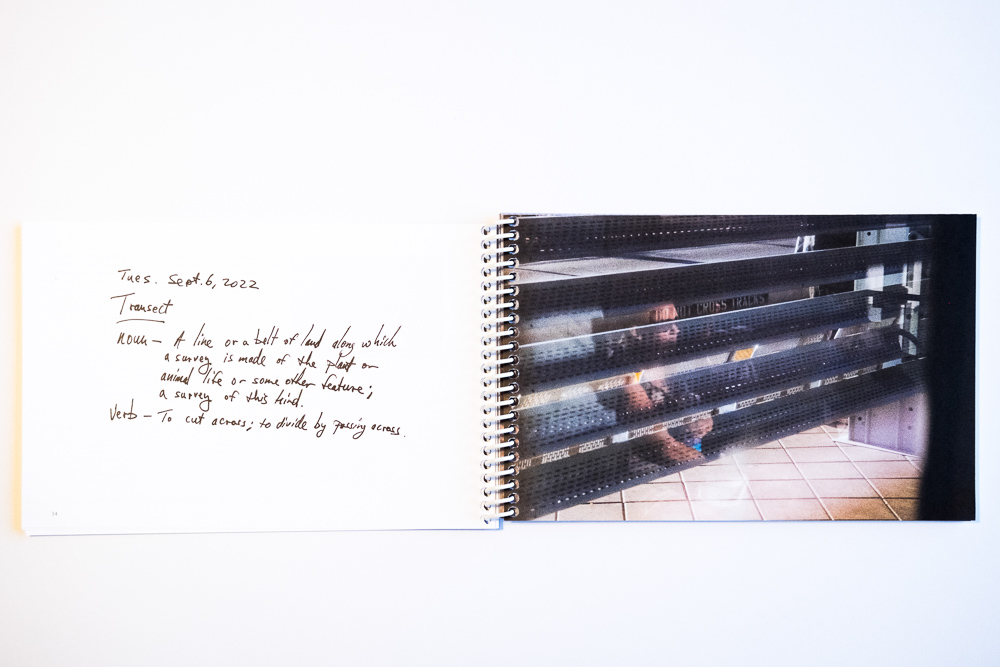 Tues. Sept. 6, 2022
Transect
noun — A line or a belt of land along which
a survey is made of the plant or
animal life or some other feature;
a survey of this kind.
Verb — To cut across; to divide by passing across.
14
CROSS TRACKS